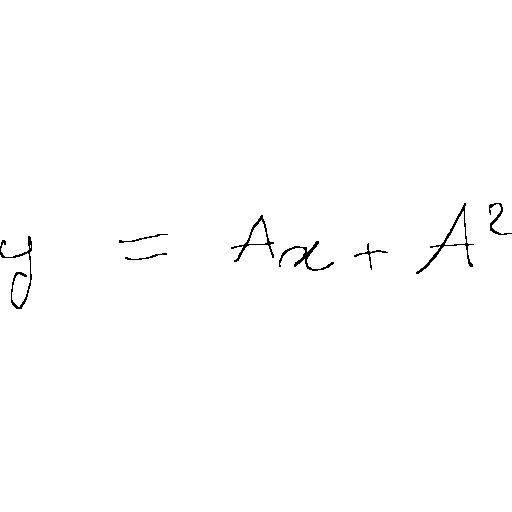 y = Ax + A²